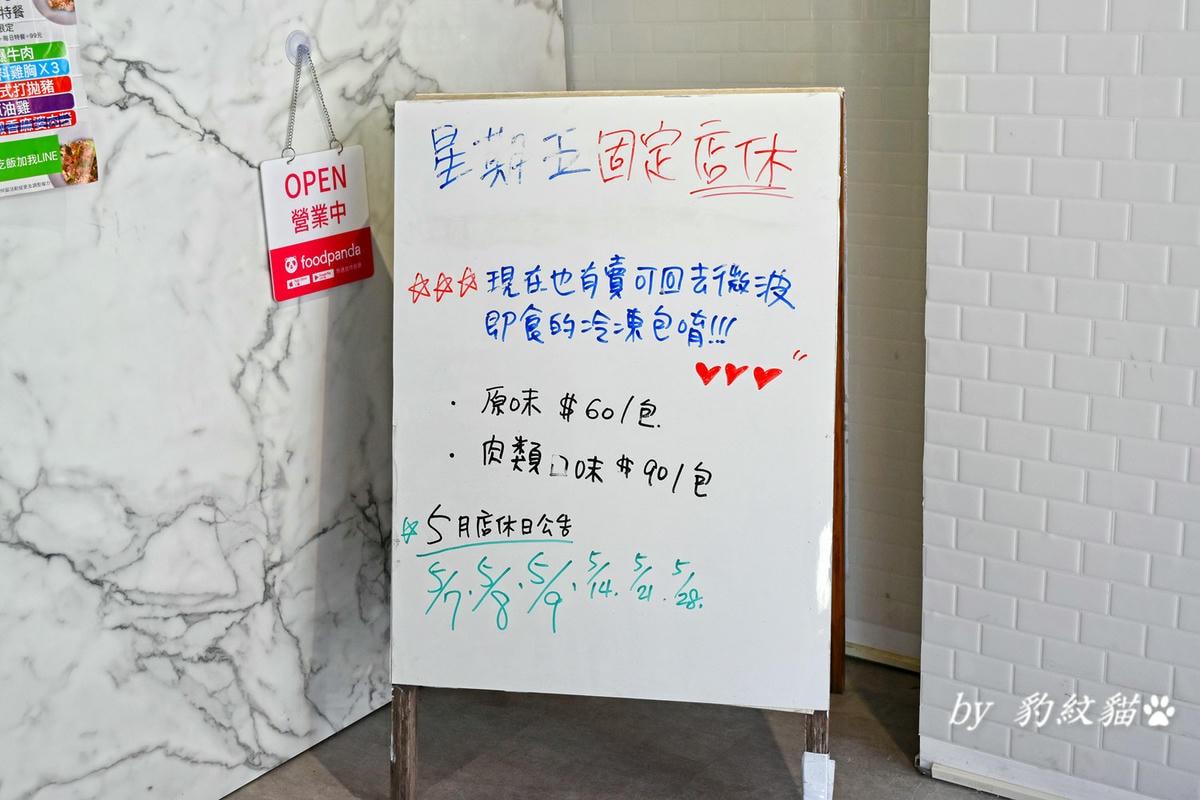 特餐
限定
牛肉
雞胸X3
式打拋豬
油雞
吃飯加我LINE
OPEN
營業中
foodpanda
星期五固定店休
現在也有賣可回去微波
即食的冷凍包唷!!!
・原味 $60/包
・肉類口味 $90/包
5月店休日公告
5/7、5/8、5/9、5/14、5/21、5/28
by 豹紋貓